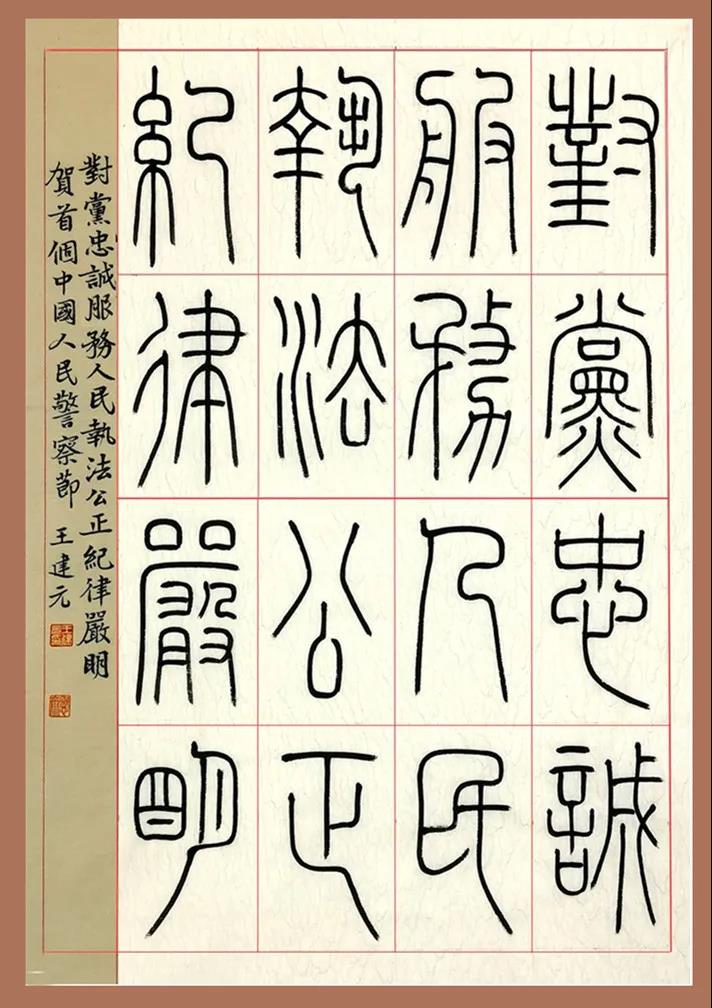 對黨忠誠
服務人民
執法公正
紀律嚴明
對黨忠誠服務人民執法公正紀律嚴明
賀首個中國人民警察節 王建元